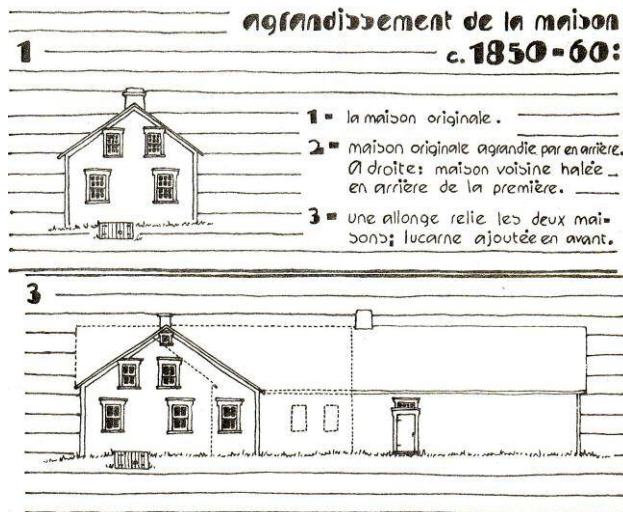 agrandissement de la maison
c. 1850-60:
1
1 - la maison originale.
2 - maison originale agrandie par en arrière.
A droite: maison voisine halée
en arrière de la première.
3 - une allonge relie les deux mai-
sons; lucarne ajoutée en avant.
3